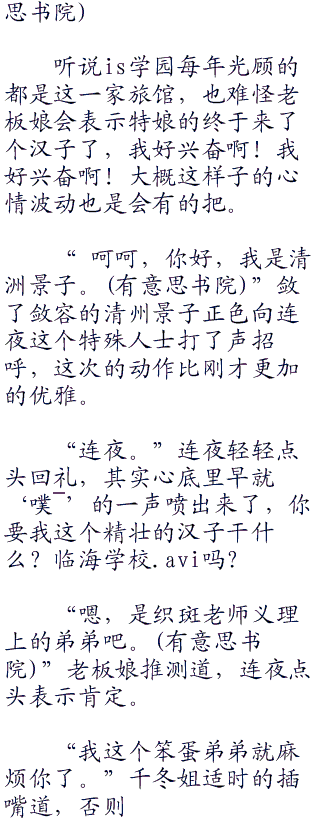 思书院)
听说is学园每年光顾的
都是这一家旅馆，也难怪老
板娘会表示特娘的终于来了
个汉子了，我好兴奋啊！我
好兴奋啊！大概这样子的心
情波动也是会有的把。
“ 呵呵，你好，我是清
洲景子。(有意思书院)”敛
了敛容的清州景子正色向连
夜这个特殊人士打了声招
呼，这次的动作比刚才更加
的优雅。
“连夜。”连夜轻轻点
头回礼，其实心底里早就
‘噗¯’的一声喷出来了，你
要我这个精壮的汉子干什
么？临海学校.avi吗？
“嗯，是织斑老师义理
上的弟弟吧。(有意思书
院)”老板娘推测道，连夜点
头表示肯定。
“我这个笨蛋弟弟就麻
烦你了。”千冬姐适时的插
嘴道，否则